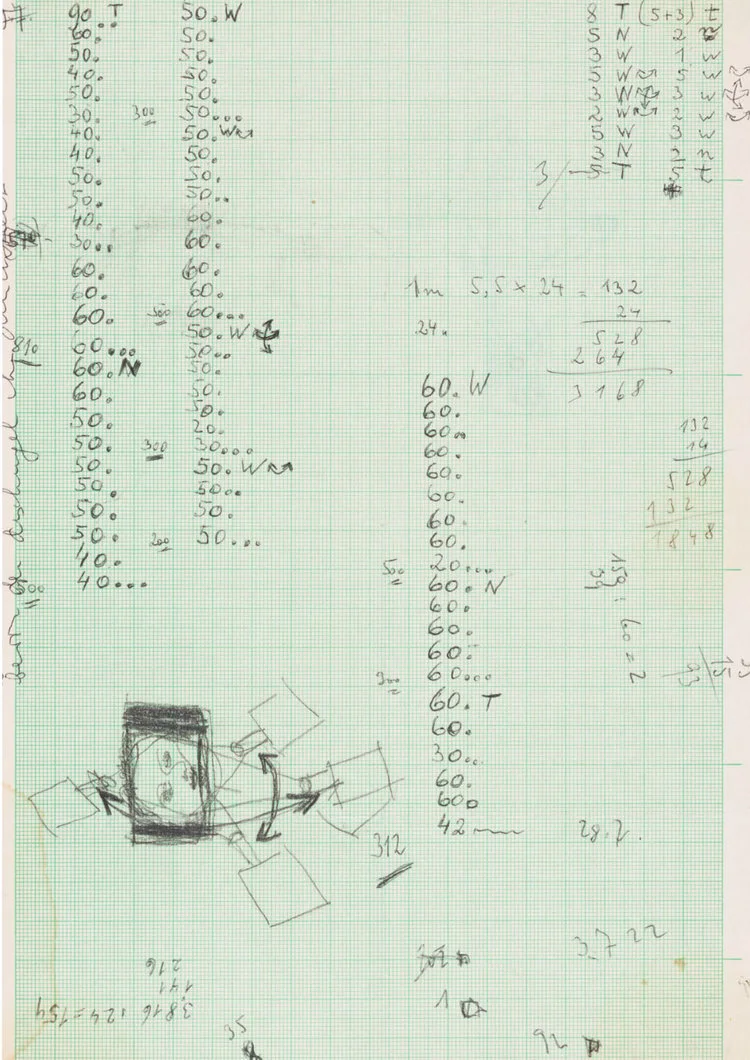 90. T
60.
50.
40.
50.
30.
40.
40.
50.
50.
40.
30..
60.
60.
60.
810
60...
60. N
60.
50.
50.
50.
50.
50.
50.
40.
40...
50. W
50.
50.
50.
50.
300 50...
50. W
50.
50.
50..
60.
60.
60.
60.
500 60...
50. W
50..
50.
50.
50.
20.
300 30...
50. W
50..
50.
200 50...
8 T (5+3) t
5 N 2
3 W 1 w
5 W 5 w
3 W 3 w
2 W 2 w
5 W 3 w
3 N 2 n
3/ 5 T 5 t
1m 5,5 × 24 = 132
24
528
264
3168
24.
132
14
528
132
1848
60. W
60.
60..
60.
60.
60.
60.
60.
500 20...
60. N
60.
60.
60.
300 60...
60. T
60.
30..
60.
60.
42
28.7.
159 : 60 = 2
39
312
3722
216
141
3,816 : 24 = 154
1
35
92